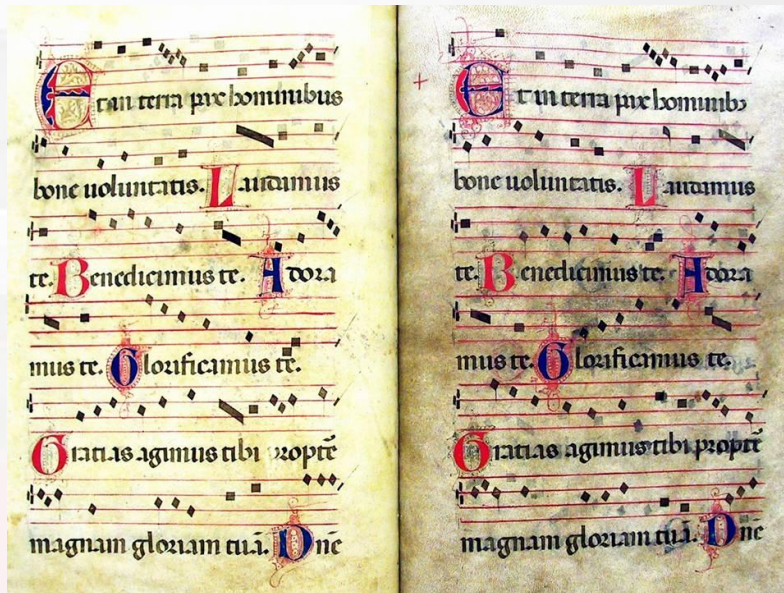 Et in terra pax hominibus
bone uoluntatis. Laudamus
te. Benedicimus te. Adora
mus te. Glorificamus te.
Gratias agimus tibi propt̄e
magnam gloriam tuā. Dn̄e
Et in terra pax hominibꝫ
bone uoluntatis. Laudamus
te. Benedicimus te. Adora
mus te. Glorificamus te.
Gratias agimus tibi propt̄e
magnam gloriam tuā. Dn̄e